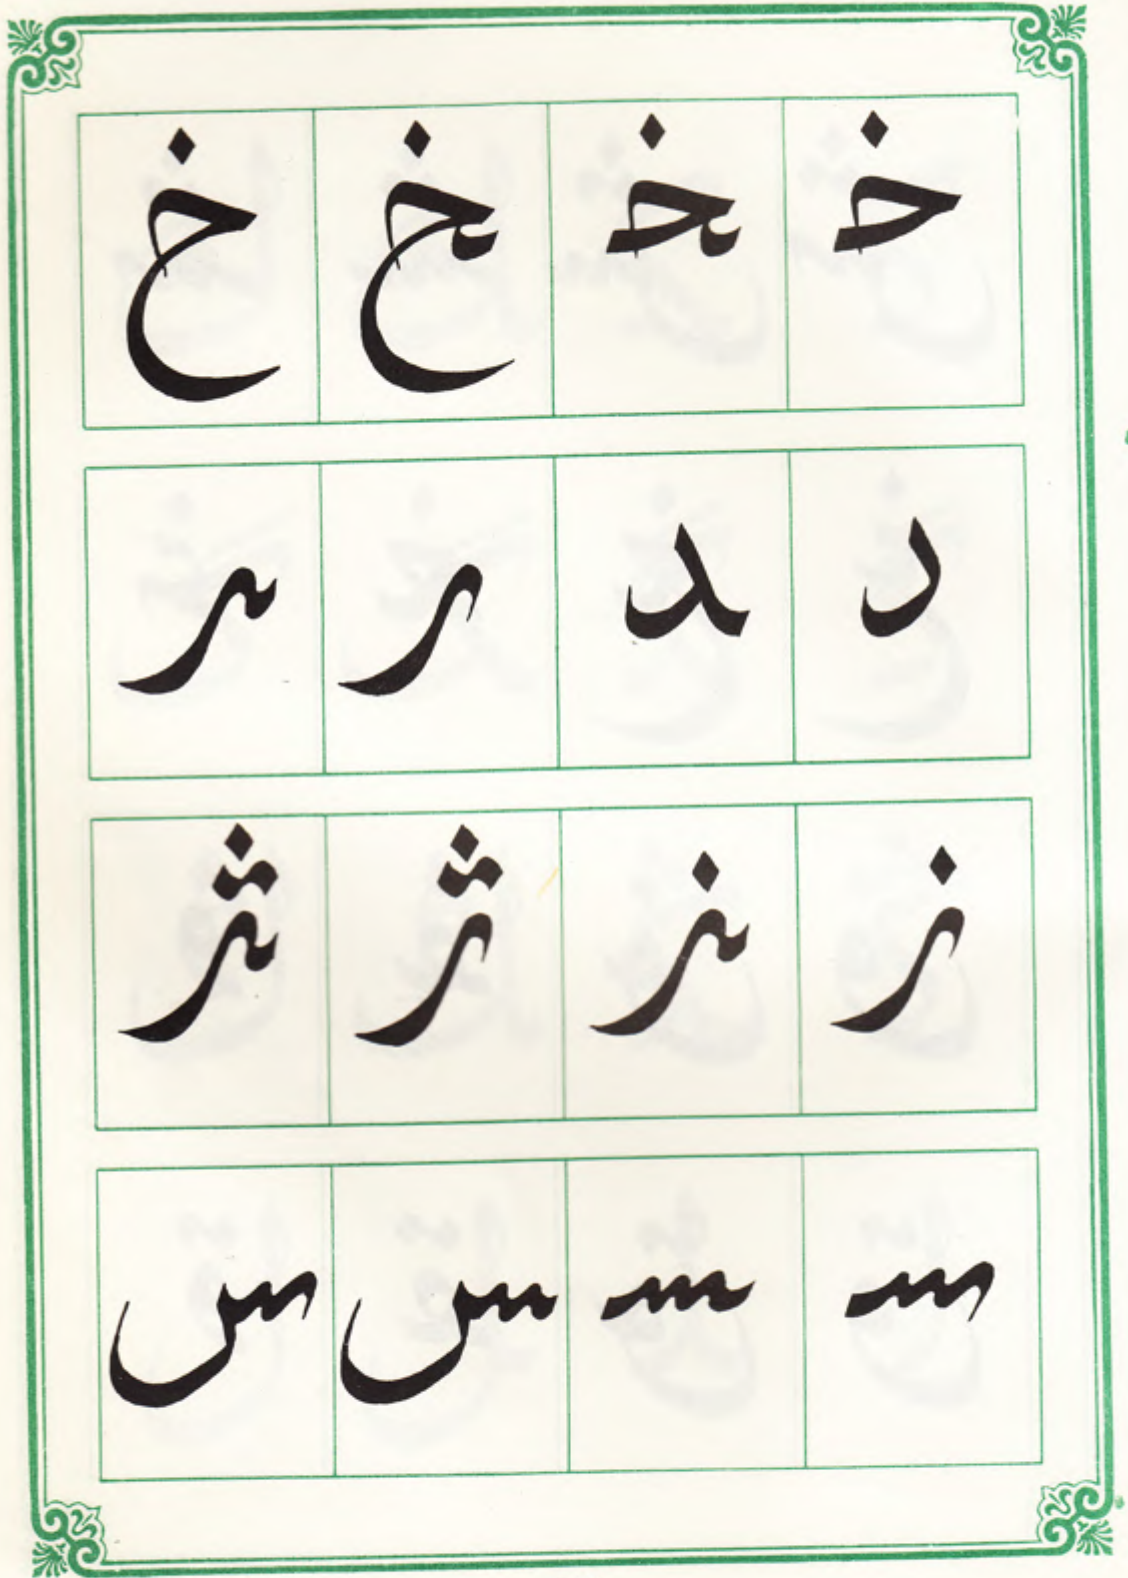 خـ ـخـ ـخ خ
د ـد ر ـر
ز ـز ژ ـژ
سـ ـسـ ـس س